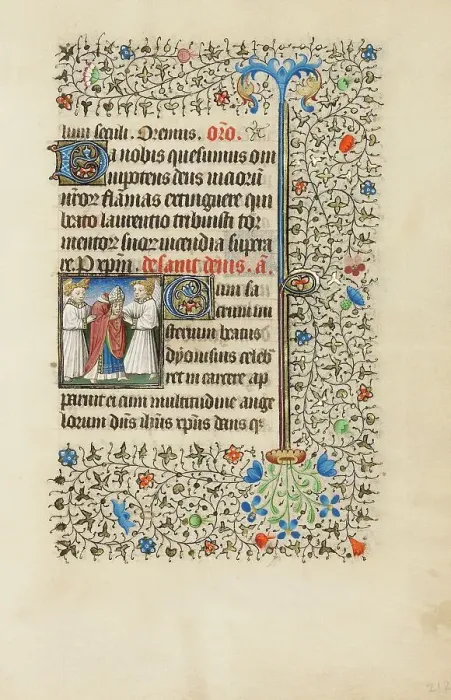 lum secli. Oremus. oro̅.
Da nobis quesumus om
nipotens deus uicioru̅
nr̅oꝝ flamas extinguere qui
beato laurentio tribuisti tor
mentoꝝ suoꝝ incendia supera
re. P xp̅m. de sanct denis. a̅.
Cum sa
crum mi
sterium beatus
dyonisius celeb
ret in carcere ap
paruit ei cum multitudine ange
lorum dn̅s ih̅us xp̅us dans
212